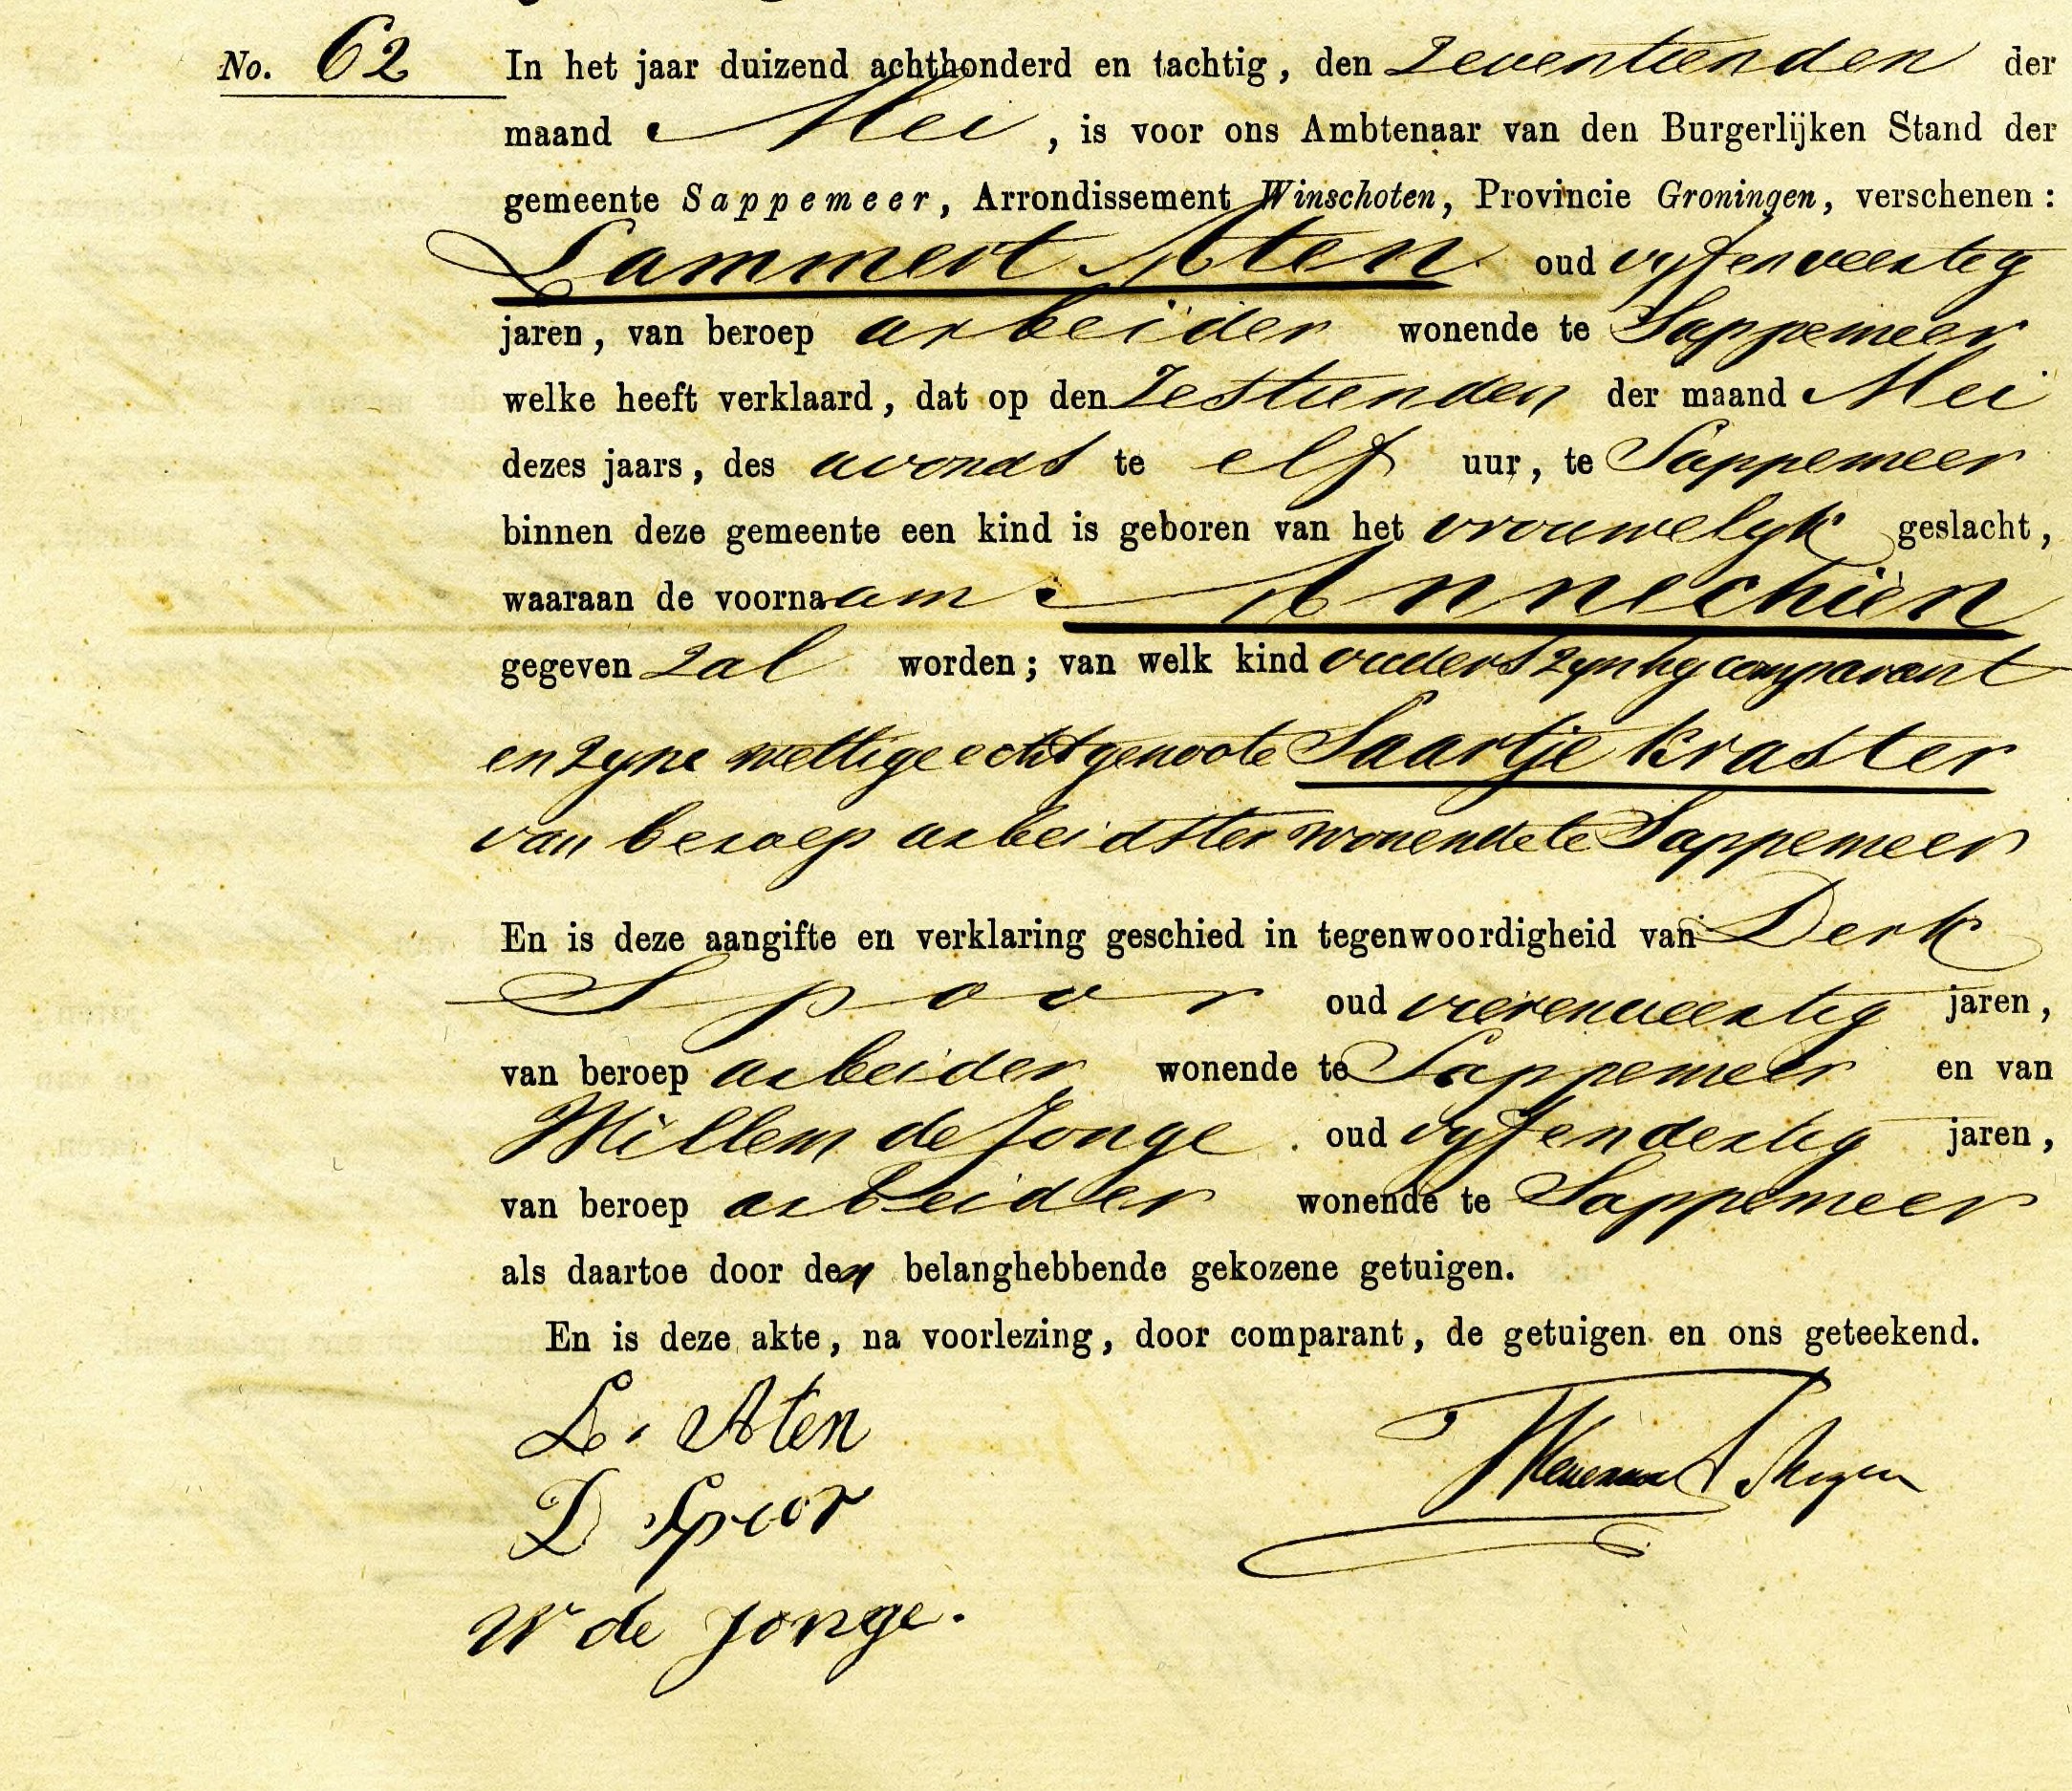 No. 62 In het jaar duizend achthonderd en tachtig, den Zeventienden der
maand Mei, is voor ons Ambtenaar van den Burgerlijken Stand der
gemeente Sappemeer, Arrondissement Winschoten, Provincie Groningen, verschenen:
Lammert Aten oud vyfenveertig
jaren, van beroep arbeider wonende te Sappemeer
welke heeft verklaard, dat op den Zestienden der maand Mei
dezes jaars, des avonds te elf uur, te Sappemeer
binnen deze gemeente een kind is geboren van het vrouwelyk geslacht,
waaraan de voornaam Annechien
gegeven zal worden; van welk kind ouders zyn hy comparant
en zyne wettige echtgenoote Saartje Kraster
van beroep arbeidster wonende te Sappemeer
En is deze aangifte en verklaring geschied in tegenwoordigheid van Derk
Spoor oud vierenveertig jaren,
van beroep arbeider wonende te Sappemeer en van
Willem de Jonge. oud vyfendertig jaren,
van beroep arbeider wonende te Sappemeer
als daartoe door den belanghebbende gekozene getuigen.
En is deze akte, na voorlezing, door comparant, de getuigen en ons geteekend.
L. Aten
D Spoor
W de Jonge.